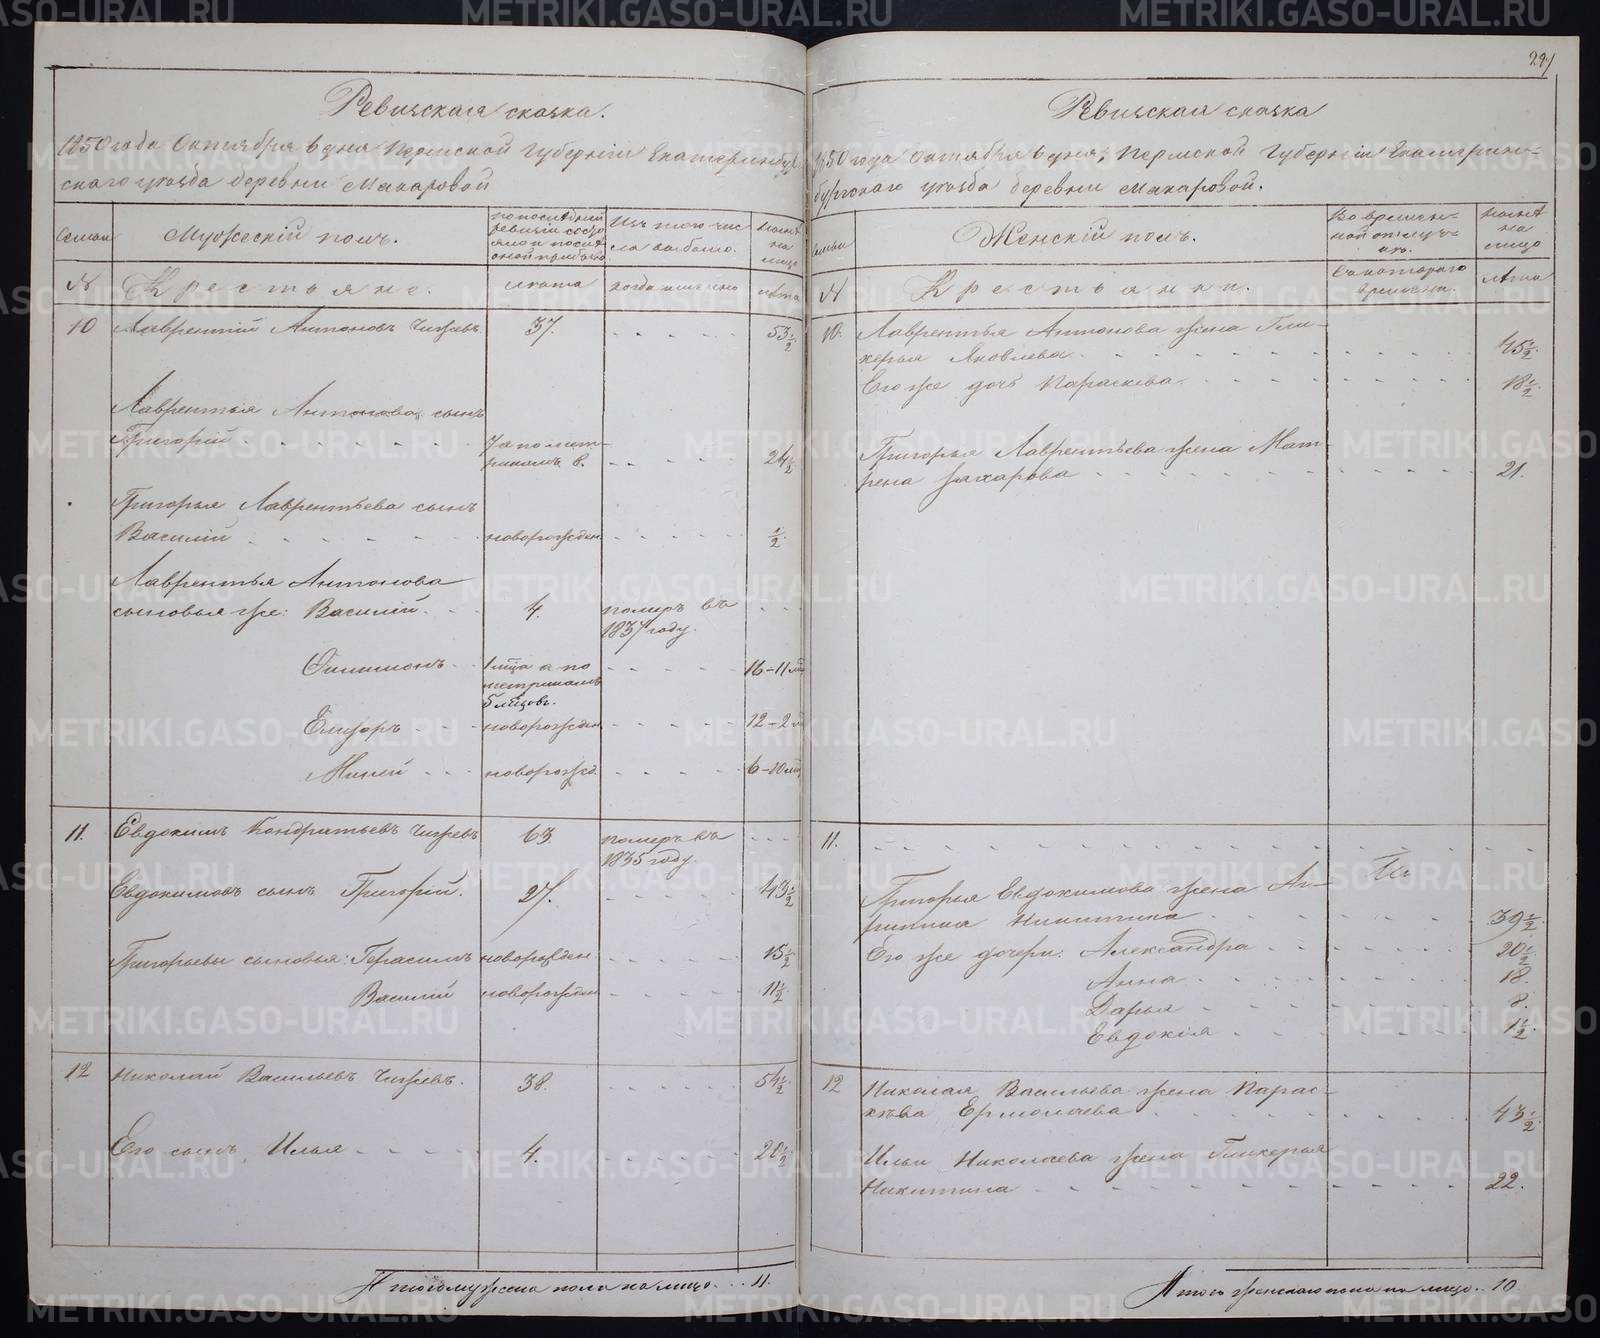 Ревизская сказка.
1850 года Октября 6 дня Пермской Губерніи Екатеринбург
скаго уѣзда деревни Макаровой
Семьи
Мужескій полъ.
по послѣдней
ревизіи состо
яло и послѣ
оной прибыло
Изъ того чис
ла выбыло.
Нынѣ
на
лицо
№
Крестьяне.
лѣта
когда именно
лѣта
10 Лаврентій Антоновъ Чижевъ 37. 53 1/2
Лаврентья Антонова сынъ
Григорій 7 а по мет-
рикамъ 8. 24 1/2
Григорья Лаврентьева сынъ
Василій новорожден 1/2
Лаврентья Антонова
сыновья же: Василій. 4. померъ въ
1837 году.
Филимонъ 1 мѣца а по
метрикамъ
5 мѣцовъ. 16-11 мѣ
Елизаръ новорожден 12-2 м
Миней новорожд. 6-10 мѣ
11. Евдокимъ Кондратьевъ Чижевъ 63. померъ въ
1835 году.
Евдокимовъ сынъ Григорій. 27. 43 1/2
Григорьевы сыновья: Герасимъ новорожден 15 1/2
Василій новорожден 11 1/2
12 Николай Васильевъ Чижевъ. 38. 54 1/2
Его сынъ Илья 4. 20 1/2
Итого мужеска пола на лицо 11.
Ревизская сказка
1850 года Октября 6 дня, Пермской Губерніи Екатерин-
бургскаго уѣзда деревни Макаровой.
семьи
Женскій полъ.
Во времен-
ной отлуч-
кѣ.
Нынѣ
на
лицо
№
Крестьянки.
Съ котораго
времени.
лѣта
10. Лаврентья Антонова жена Гли-
керья Яковлева 45 1/2
Его же дочь Параскева 18 1/2
Григорья Лаврентьева жена Мат-
рена Захарова 21.
11.
Григорья Евдокимова жена Аг-
рипина Никитина 39 1/2
Его же дочери: Александра 20 1/2
Анна 18.
Дарья 8.
Евдокія 1 1/2
12 Николая Васильева жена Парас-
кѣва Ермолаева 43 1/2
Ильи Николаева жена Гликерья
Никитина 22.
Итого женскаго пола на лицо 10
METRIKI.GASO-URAL.RU